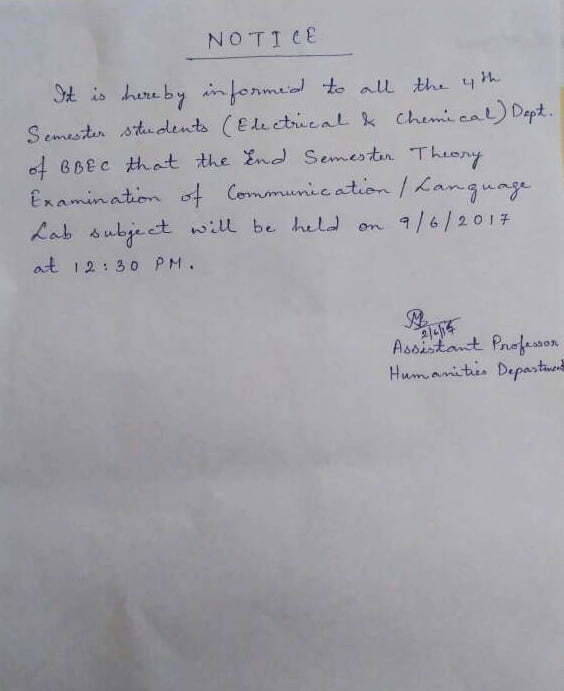 NOTICE
It is hereby informed to all the 4th
Semester students (Electrical & Chemical) Dept.
of BBEC that the End Semester Theory
Examination of Communication / Language
Lab subject will be held on 9/6/2017
at 12:30 PM.
2/6/17
Assistant Professor
Humanities Department